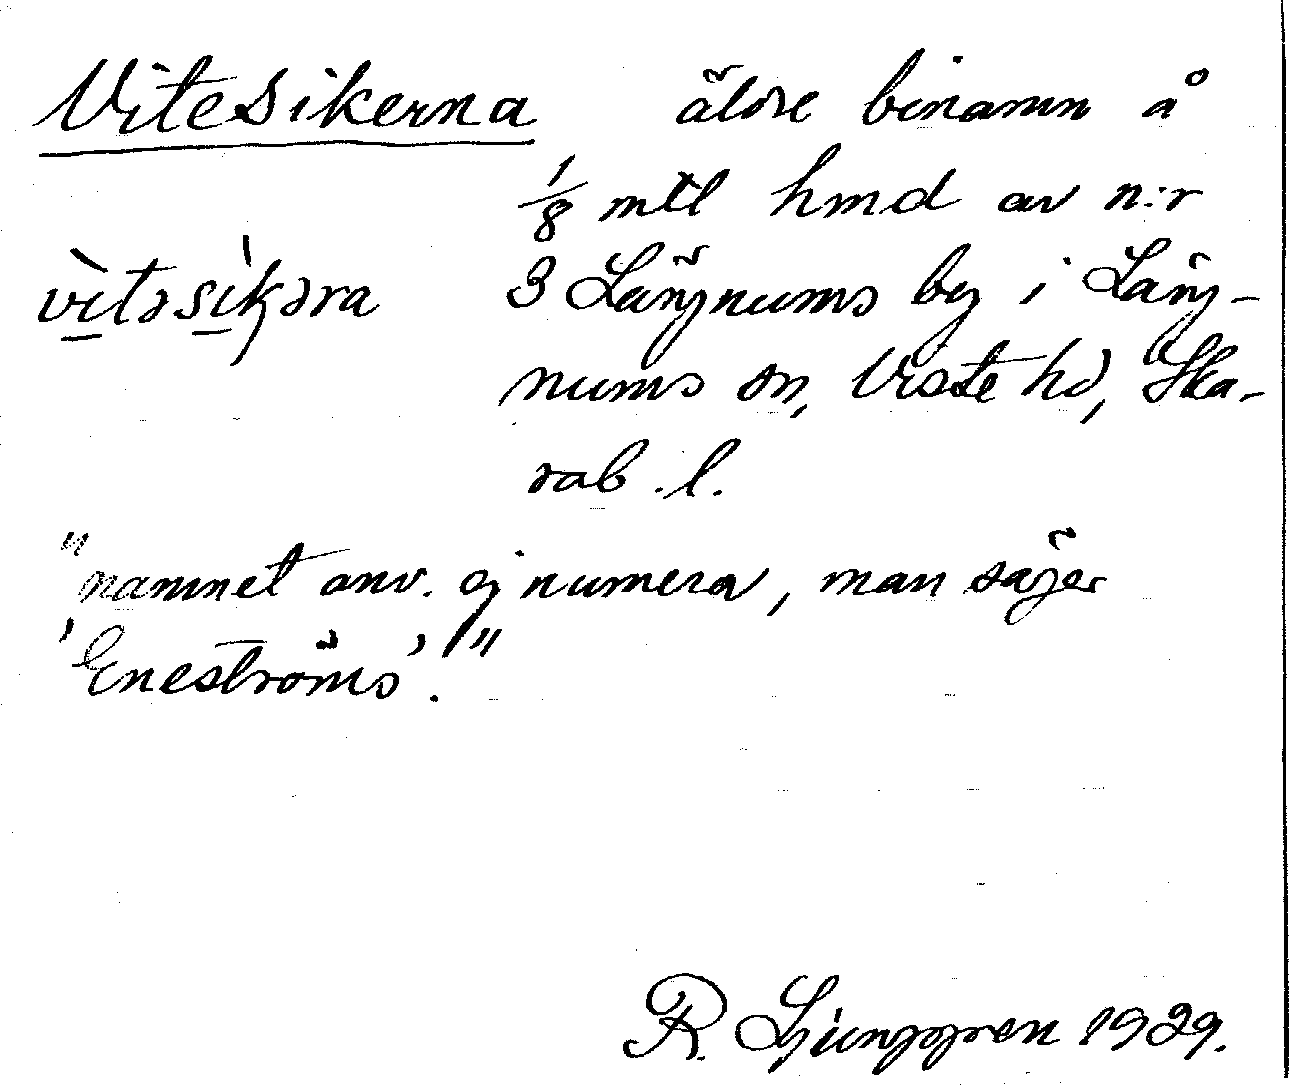 Vitesikerna äldre binamn å
1/8 mtl hmd av n:r
vìtəsìkəra 3 Längnums by i Läng-
nums sn, Viste hd, Ska-
rab. l.
"namnet anv. ej numera, man säjer
'Eneströms'."
R. Ljunggren 1929.